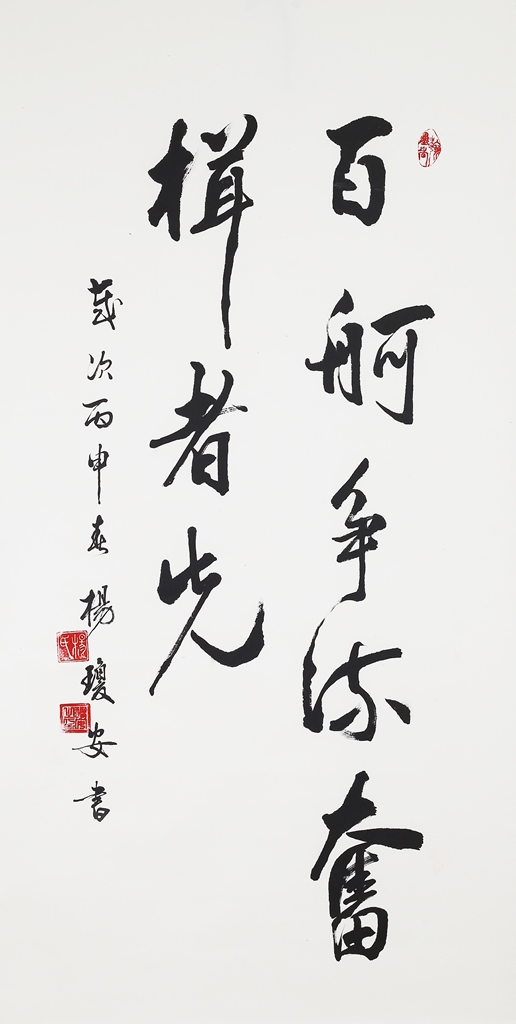 百舸争流奮
楫者先
歲次丙申春楊瓊安書